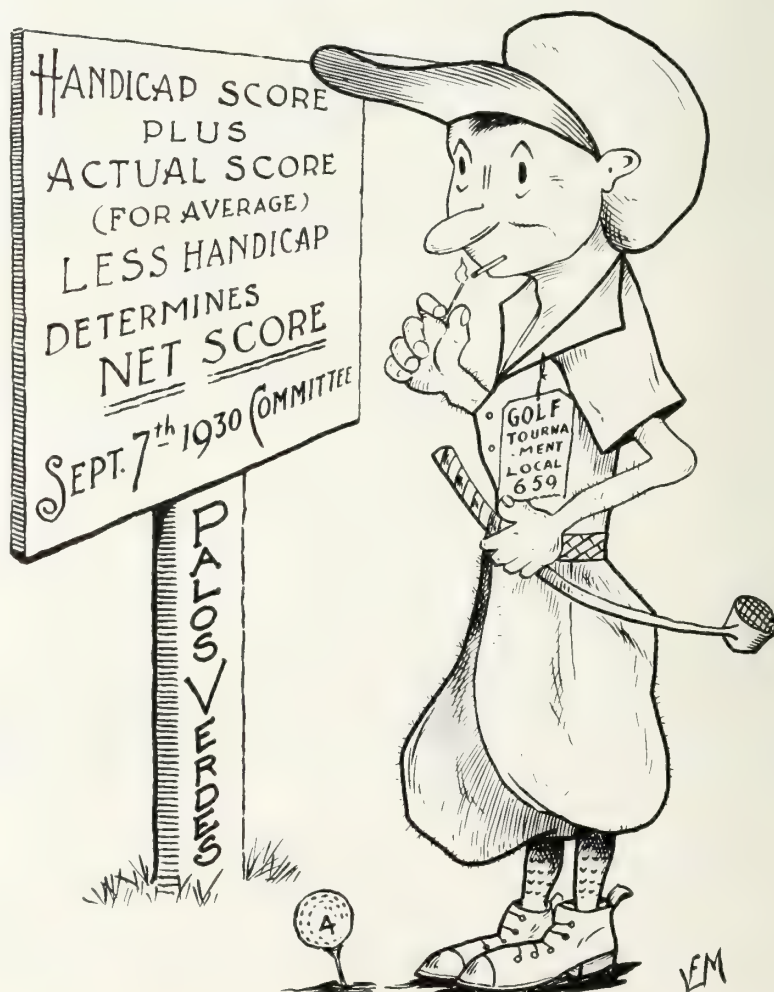 HANDICAP SCORE
PLUS
ACTUAL SCORE
(FOR AVERAGE)
LESS HANDICAP
DETERMINES
NET SCORE
SEPT. 7th 1930 COMMITTEE
PALOS VERDES
GOLF
TOURNA
-MENT
LOCAL
659
4